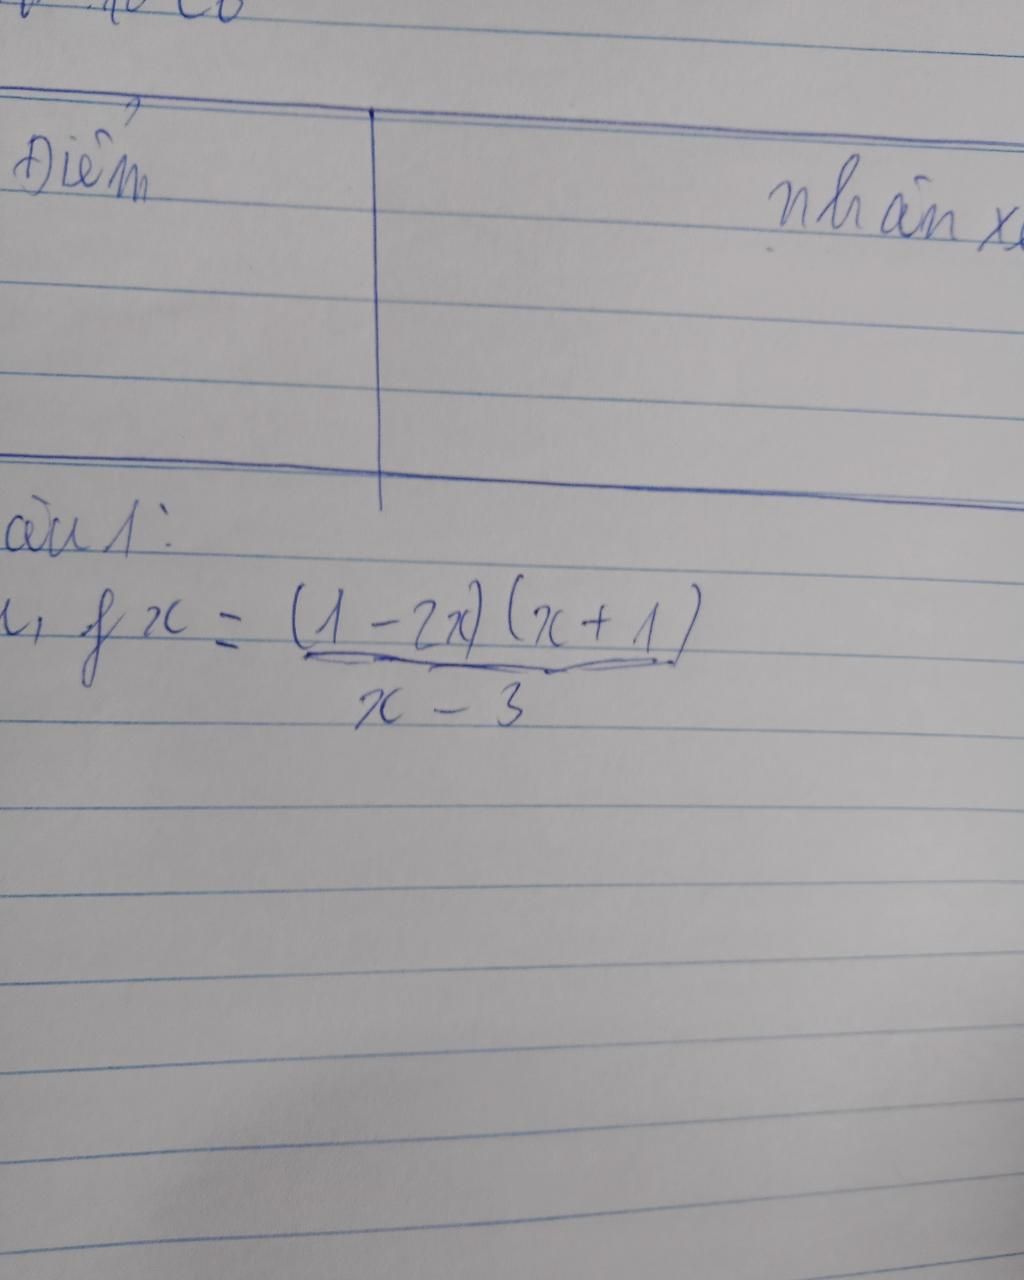 Điểm
nhận x
âu 1:
f x = (1 - 2x) (x + 1)
x - 3